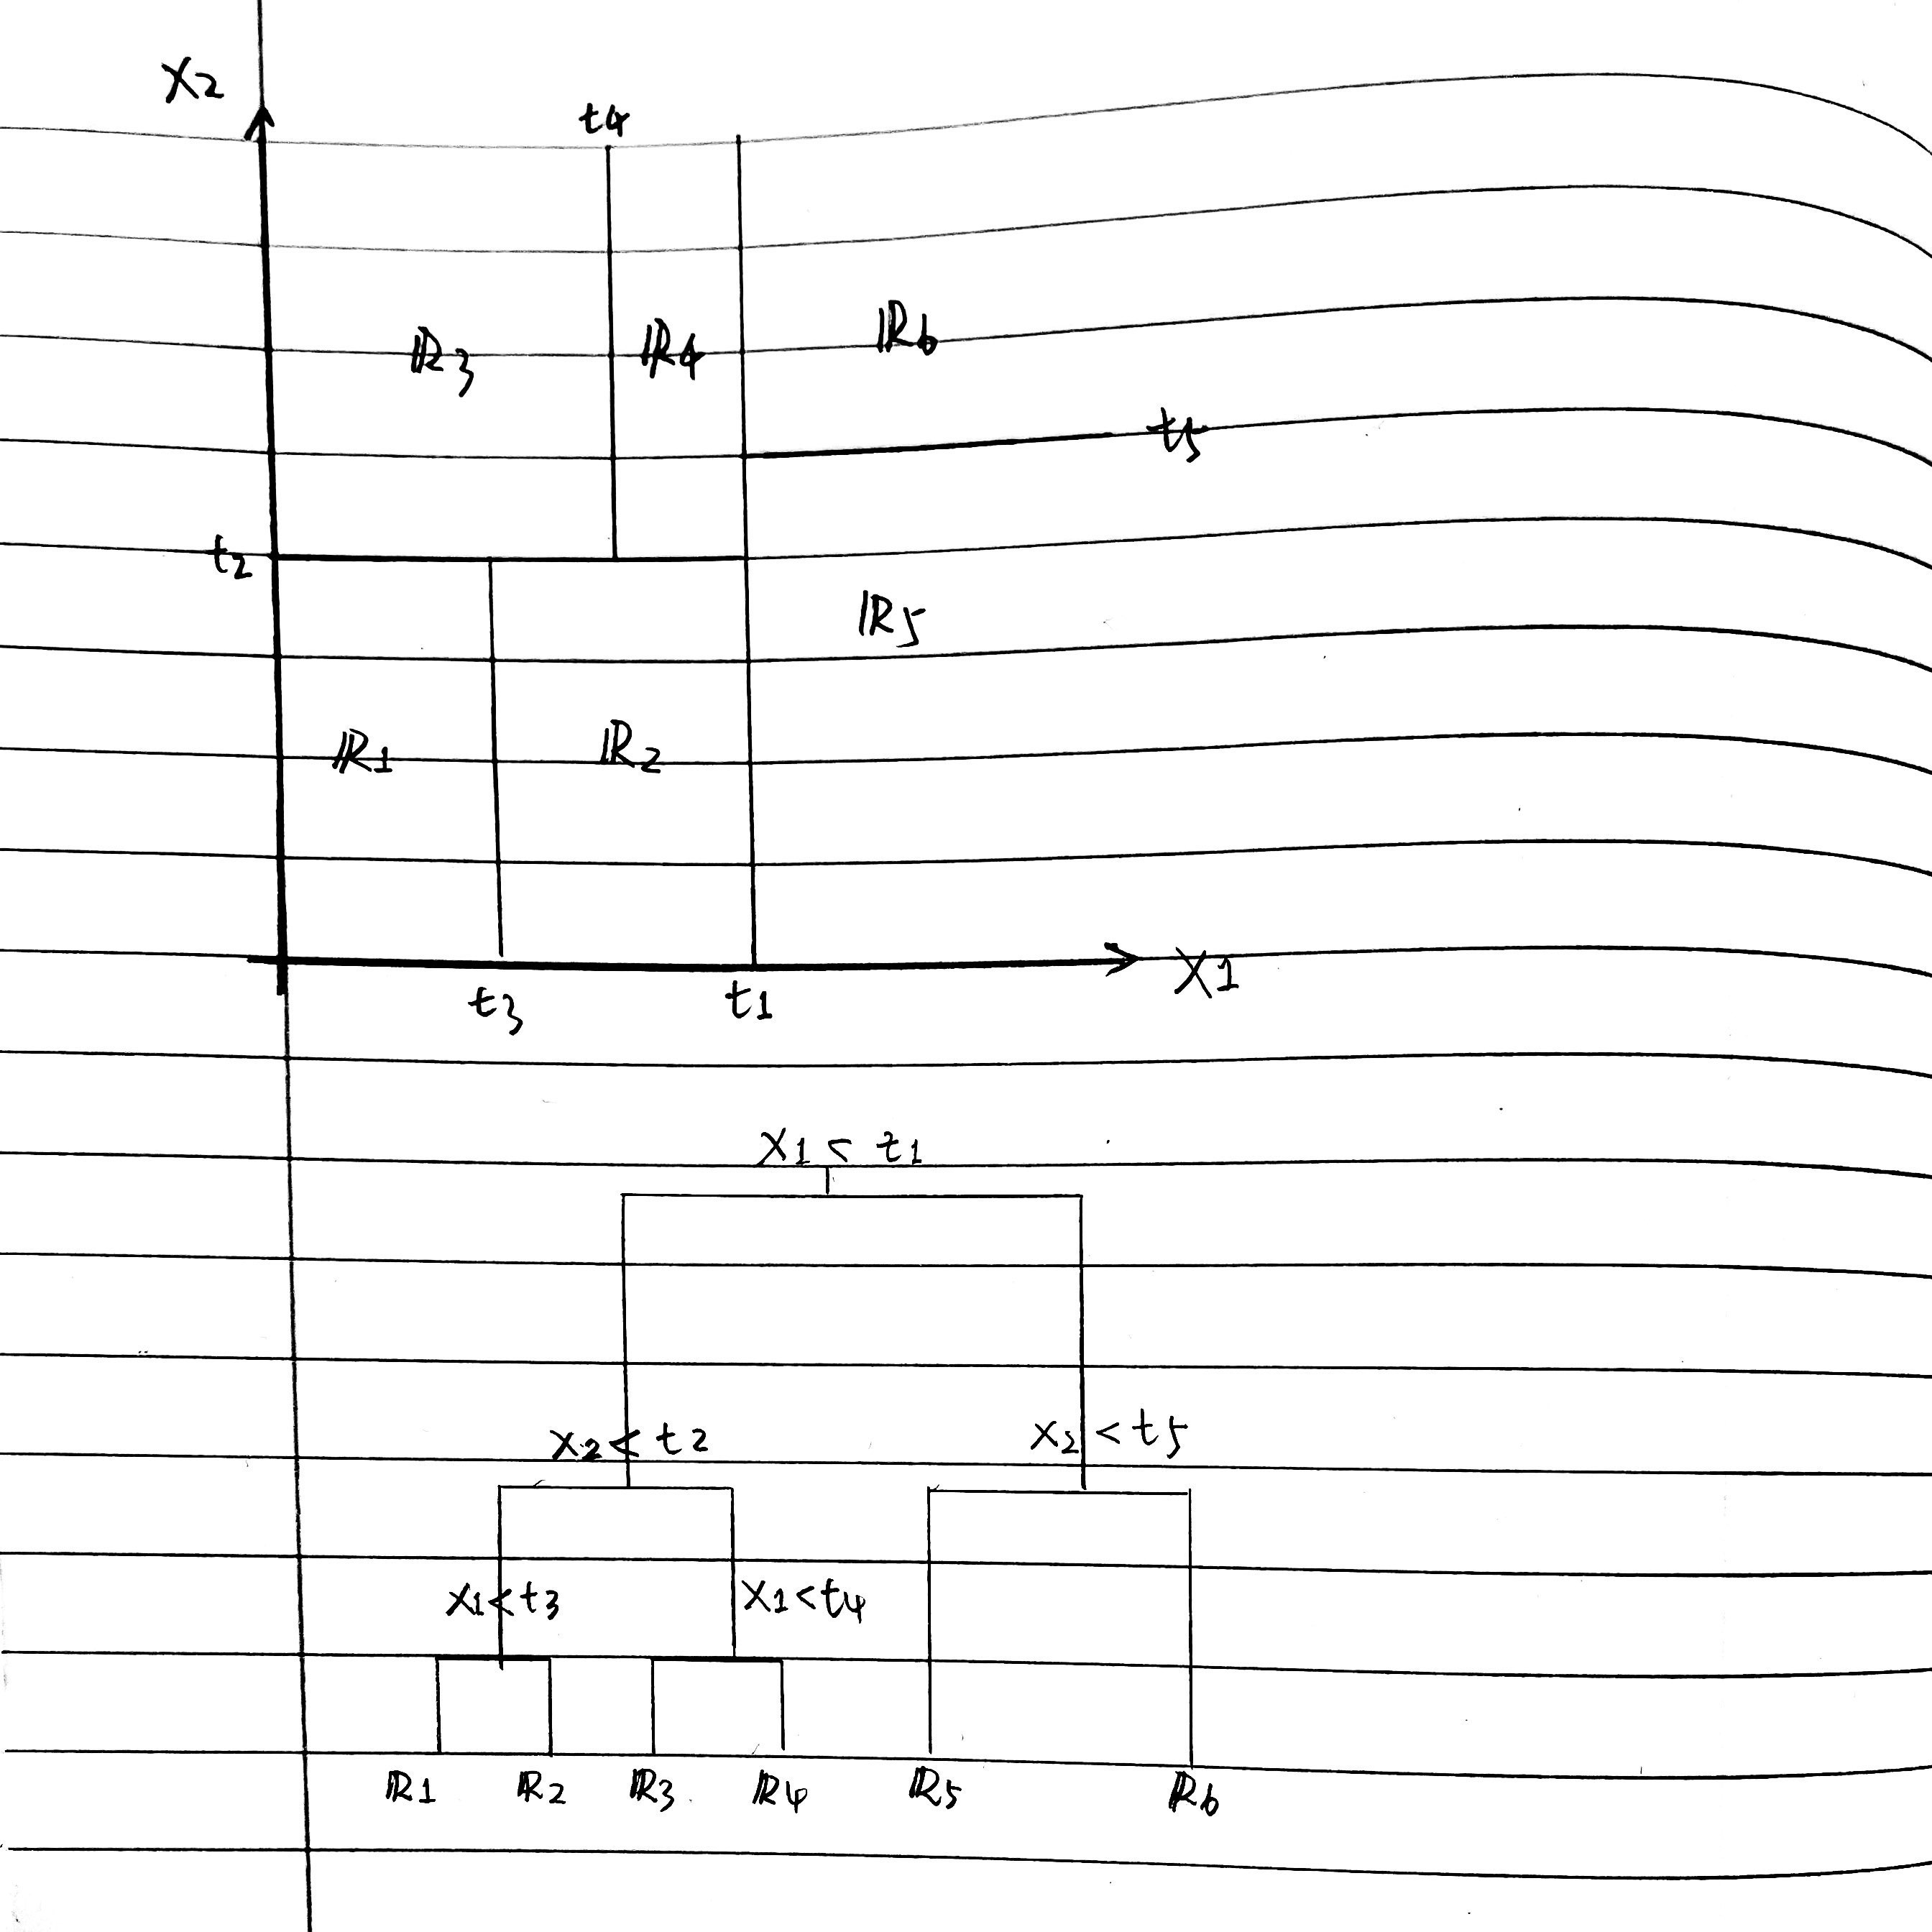 X2
t4
R3 R4 R6
t5
t2
R5
R1 R2
X1
t3 t1
X1 < t1
X2 < t2 X2 < t5
X1 < t3 X1 < t4
R1 R2 R3 R4 R5 R6